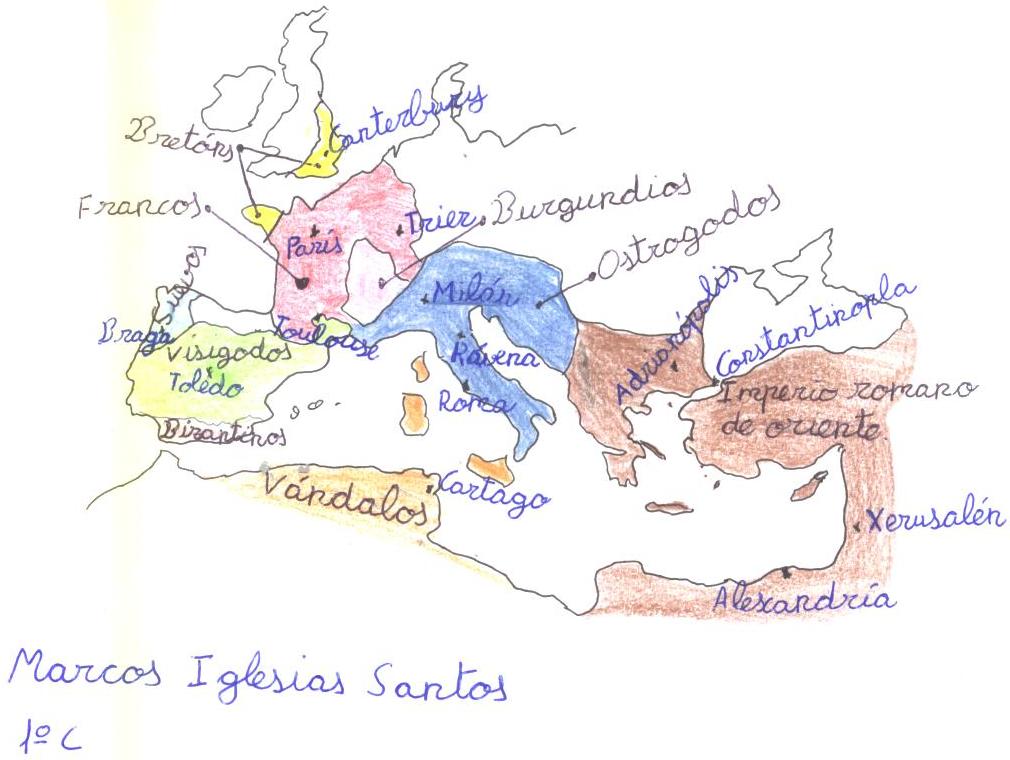 Canterbury
Bretóns
Francos
Trier
Burgundios
París
Ostrogodos
Suevos
Milán
Adrianópolis
Constantinopla
Braga
Toulouse
Visigodos
Rávena
Toledo
Roma
Imperio romano
de oriente
Bizantinos
Vándalos
Cartago
Xerusalén
Alexandría
Marcos Iglesias Santos
1º C